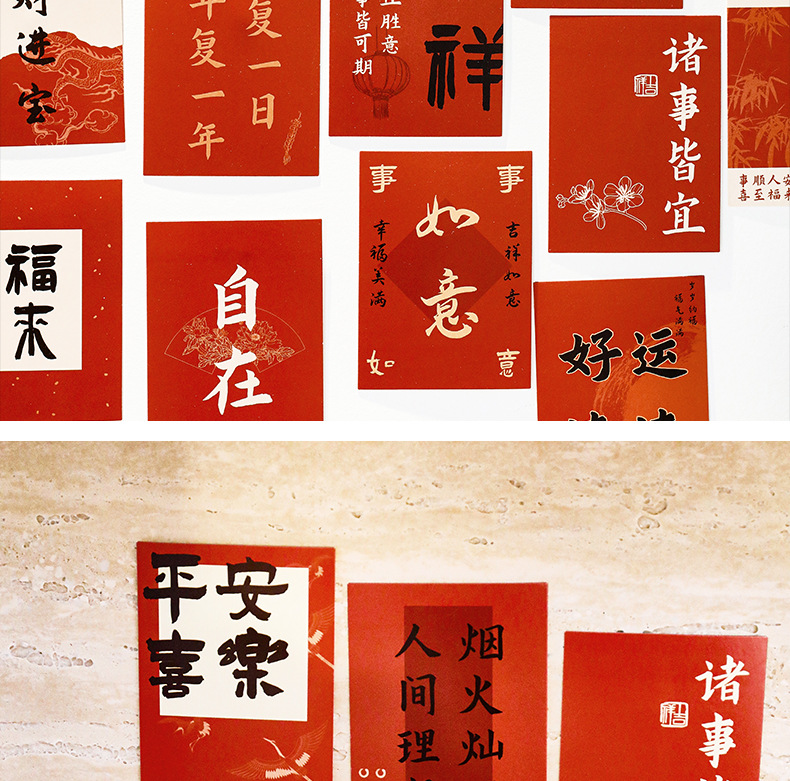 进宝
复一日
年复一年
胜意
事皆可期
祥
诸事皆宜
吉祥
事顺人安
喜至福来
福来
自在
事事
如意
吉祥如意
幸福美满
如意
好运
福气满满
平安
喜樂
烟火灿
人间理
诸事
吉祥